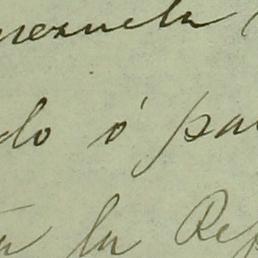 nezuela
do ó pa
la Rep